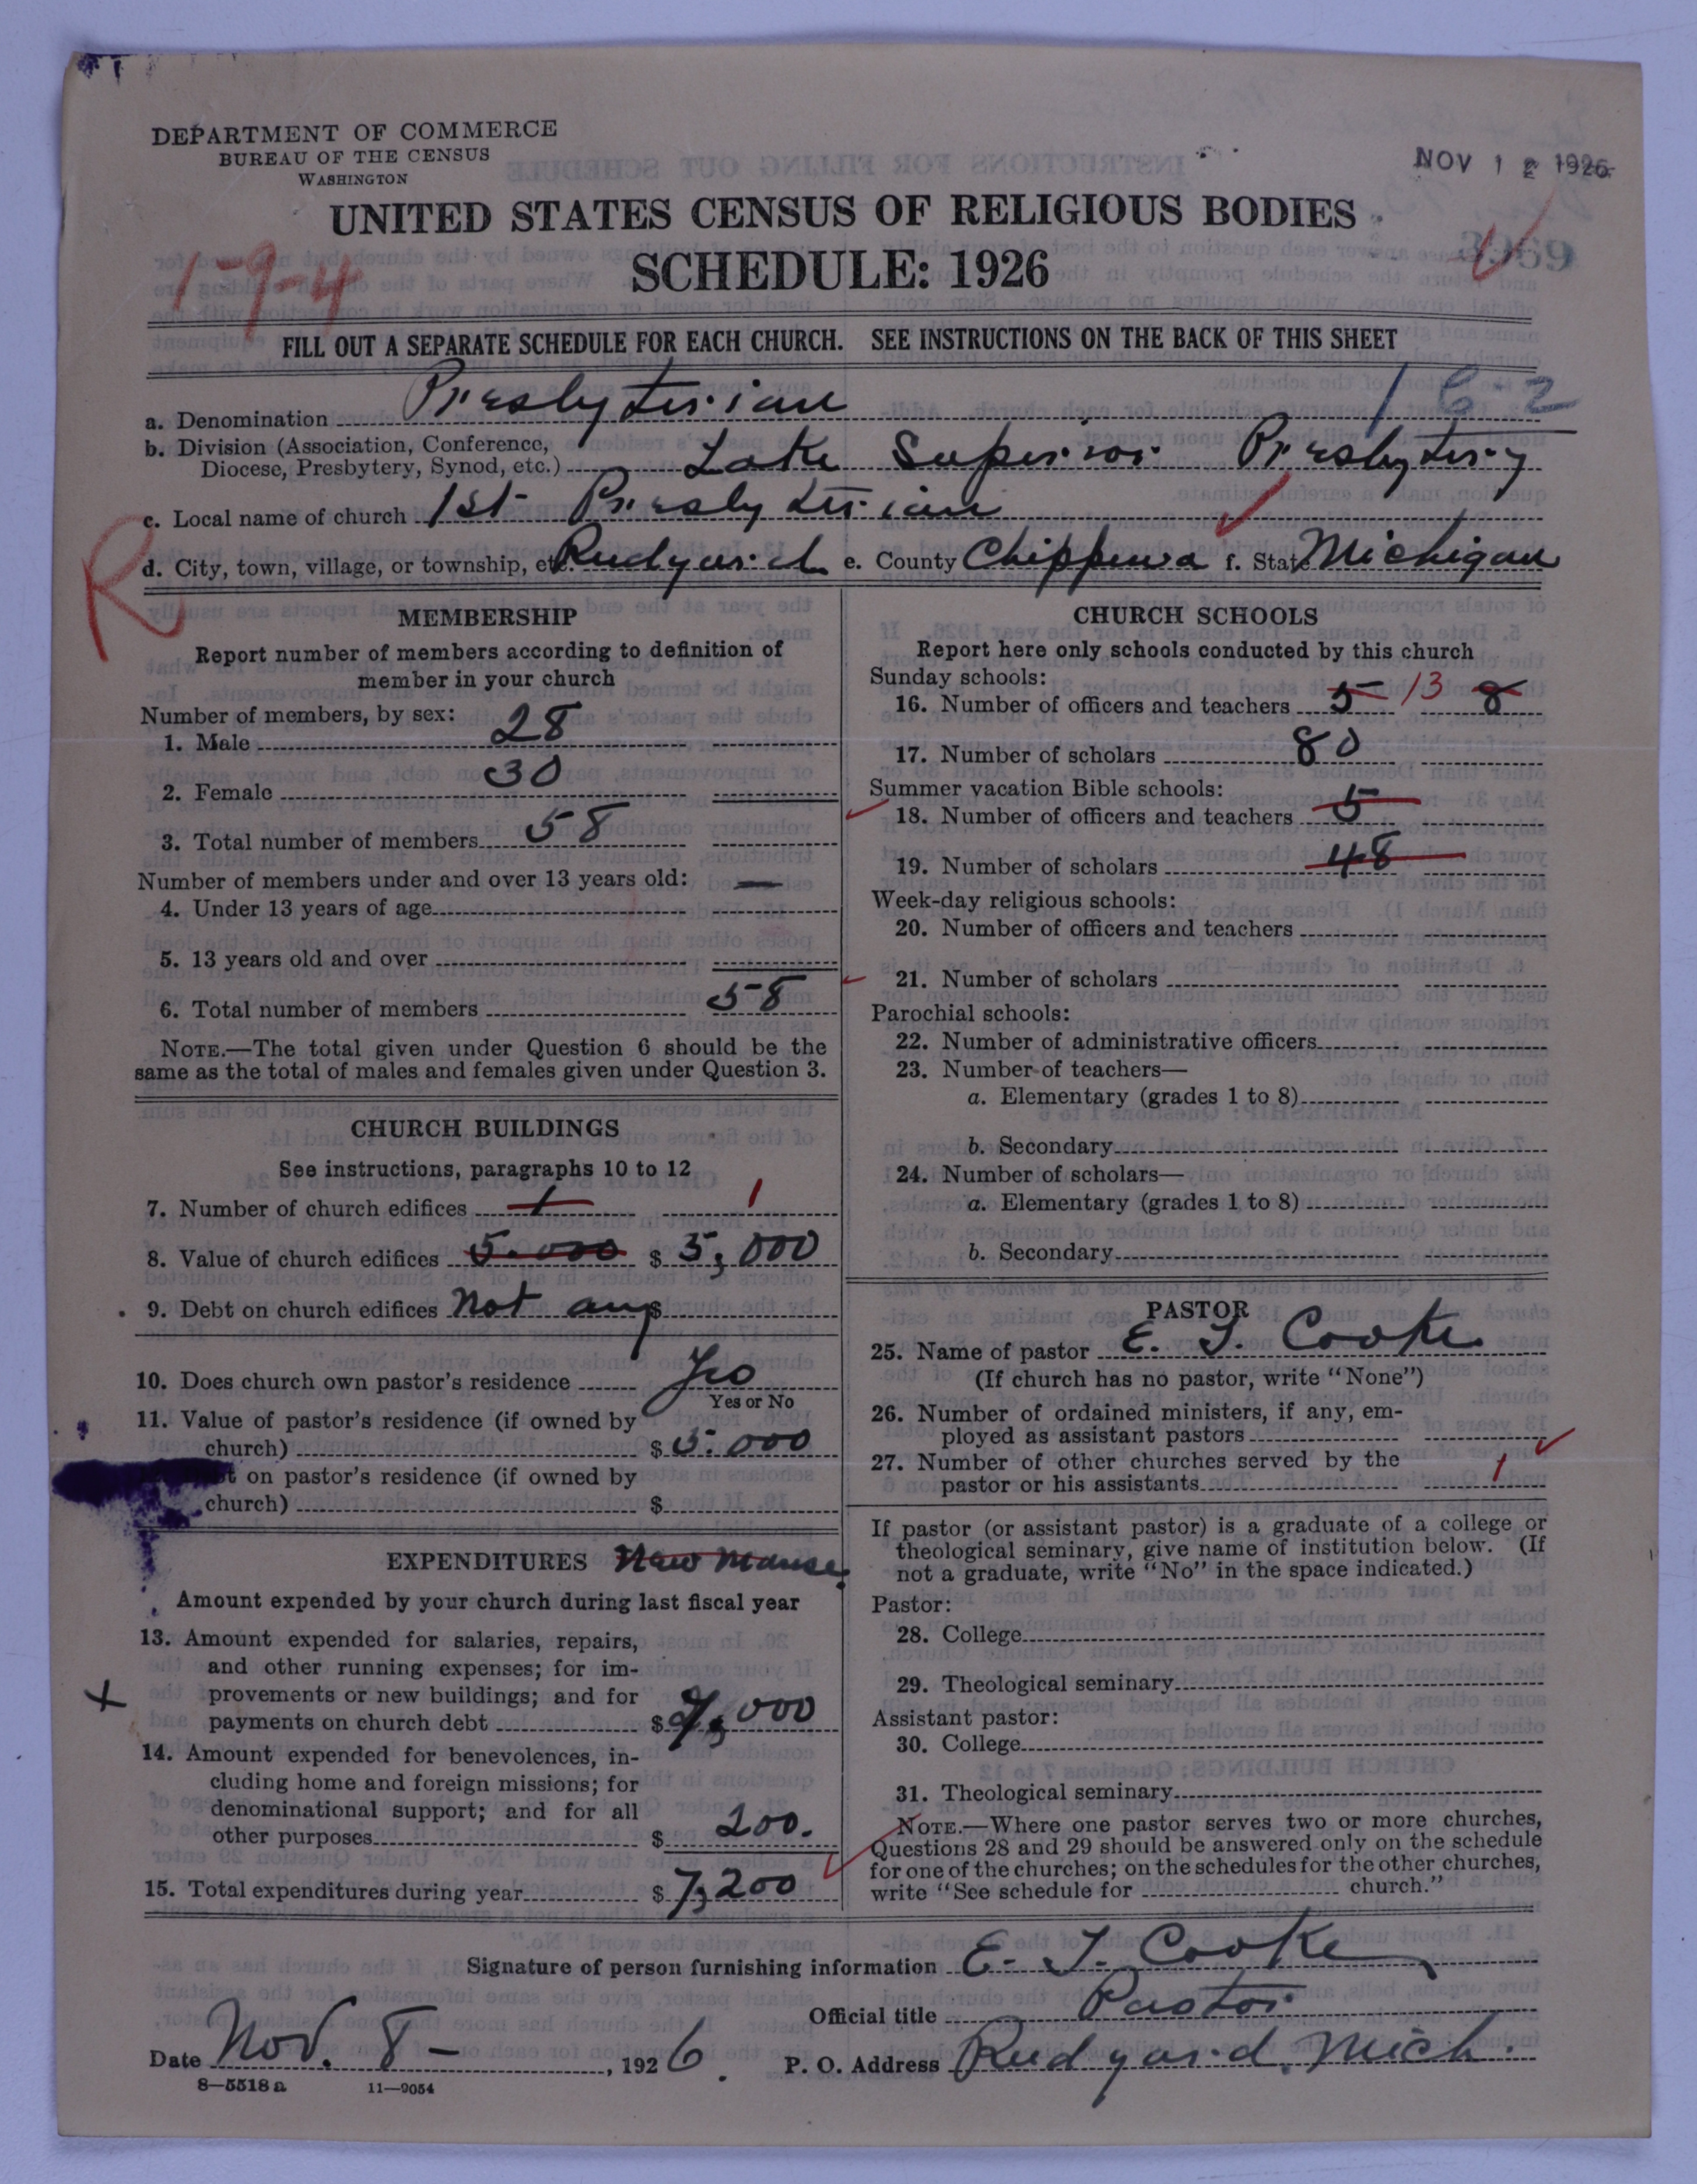 DEPARTMENT OF COMMERCE
BUREAU OF THE CENSUS
WASHINGTON
NOV 12 1926
UNITED STATES CENSUS OF RELIGIOUS BODIES
SCHEDULE: 1926
3969
1-9-4
FILL OUT A SEPARATE SCHEDULE FOR EACH CHURCH. SEE INSTRUCTIONS ON THE BACK OF THIS SHEET
a. Denomination Presbyterian 1 6-2
b. Division (Association, Conference,
Diocese, Presbytery, Synod, etc.) Lake Superior Presbytery
c. Local name of church 1st Presbyterian
R
d. City, town, village, or township, etc. Rudyard e. County Chippewa f. State Michigan
MEMBERSHIP
Report number of members according to definition of
member in your church
Number of members, by sex:
1. Male 28
2. Female 30
3. Total number of members 58
Number of members under and over 13 years old: —
4. Under 13 years of age
5. 13 years old and over
6. Total number of members 58
NOTE.—The total given under Question 6 should be the
same as the total of males and females given under Question 3.
CHURCH BUILDINGS
See instructions, paragraphs 10 to 12
7. Number of church edifices 1 1
8. Value of church edifices 5.000 $ 5,000
9. Debt on church edifices Not any $
10. Does church own pastor's residence Yes
Yes or No
11. Value of pastor's residence (if owned by
church) $ 5.000
t on pastor's residence (if owned by
church) $
EXPENDITURES New Manse
Amount expended by your church during last fiscal year
13. Amount expended for salaries, repairs,
and other running expenses; for im-
provements or new buildings; and for
payments on church debt $ 7,000
14. Amount expended for benevolences, in-
cluding home and foreign missions; for
denominational support; and for all
other purposes $ 200.
15. Total expenditures during year $ 7,200
CHURCH SCHOOLS
Report here only schools conducted by this church
Sunday schools:
16. Number of officers and teachers 5 13 8
17. Number of scholars 80
Summer vacation Bible schools:
18. Number of officers and teachers 5
19. Number of scholars 48
Week-day religious schools:
20. Number of officers and teachers
21. Number of scholars
Parochial schools:
22. Number of administrative officers
23. Number of teachers—
a. Elementary (grades 1 to 8)
b. Secondary
24. Number of scholars—
a. Elementary (grades 1 to 8)
b. Secondary
PASTOR
25. Name of pastor E. T. Cooke
(If church has no pastor, write "None")
26. Number of ordained ministers, if any, em-
ployed as assistant pastors
27. Number of other churches served by the
pastor or his assistants 1
If pastor (or assistant pastor) is a graduate of a college or
theological seminary, give name of institution below. (If
not a graduate, write "No" in the space indicated.)
Pastor:
28. College
29. Theological seminary
Assistant pastor:
30. College
31. Theological seminary
NOTE.—Where one pastor serves two or more churches,
Questions 28 and 29 should be answered only on the schedule
for one of the churches; on the schedules for the other churches,
write "See schedule for church."
Signature of person furnishing information E. T. Cooke
Official title Pastor
Date Nov. 8 - , 1926. P. O. Address Rudyard, Mich.
8—5518 a 11—9054